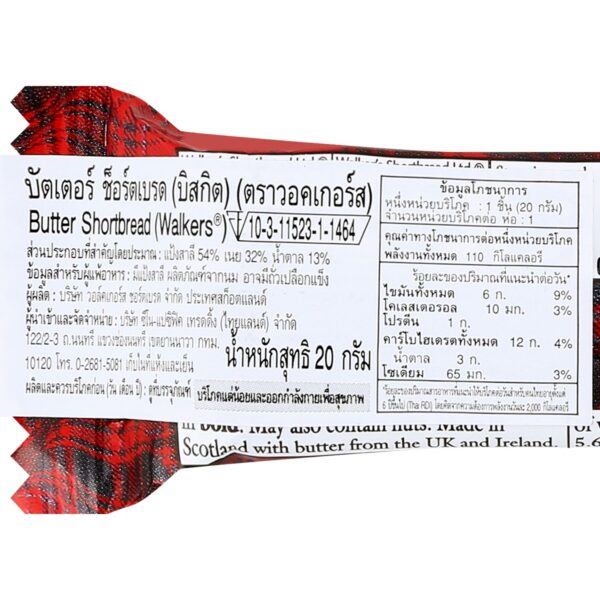 บัตเตอร์ ช็อร์ตเบรด (บิสกิต) (ตราวอคเกอร์ส)
Butter Shortbread (Walkers®) 10-3-11523-1-1464
ส่วนประกอบที่สำคัญโดยประมาณ : แป้งสาลี 54% เนย 32% น้ำตาล 13%
ข้อมูลสำหรับผู้แพ้อาหาร : มีแป้งสาลี ผลิตภัณฑ์จากนม อาจมีถั่วเปลือกแข็ง
ผู้ผลิต : บริษัท วอล์คเกอร์ส ชอร์ตเบรด จำกัด ประเทศสก็อตแลนด์
ผู้นำเข้าและจัดจำหน่าย : บริษัท ซีโน-แปซิฟิค เทรดดิ้ง (ไทยแลนด์) จำกัด
122/2-3 ถ.นนทรี แขวงช่องนนทรี เขตยานนาวา กทม.
10120 โทร. 0-2681-5081 เก็บในที่แห้งและเย็น
น้ำหนักสุทธิ 20 กรัม
ผลิตและควรบริโภคก่อน (วัน เดือน ปี) : ดูที่บรรจุภัณฑ์
บริโภคแต่น้อยและออกกำลังกายเพื่อสุขภาพ
ข้อมูลโภชนาการ
หนึ่งหน่วยบริโภค : 1 ชิ้น (20 กรัม)
จำนวนหน่วยบริโภคต่อ ห่อ : 1
คุณค่าทางโภชนาการต่อหนึ่งหน่วยบริโภค
พลังงานทั้งหมด 110 กิโลแคลอรี
ร้อยละของปริมาณที่แนะนำต่อวัน*
ไขมันทั้งหมด 6 ก. 9%
โคเลสเตอรอล 10 มก. 3%
โปรตีน 1 ก.
คาร์โบไฮเดรตทั้งหมด 12 ก. 4%
น้ำตาล 3 ก.
โซเดียม 65 มก. 3%
*ร้อยละของปริมาณสารอาหารที่แนะนำให้บริโภคต่อวันสำหรับคนไทยอายุตั้งแต่
6 ปีขึ้นไป (Thai RDI) โดยคิดจากความต้องการพลังงานวันละ 2,000 กิโลแคลอรี
in bold. May also contain nuts. Made in
Scotland with butter from the UK and Ireland.